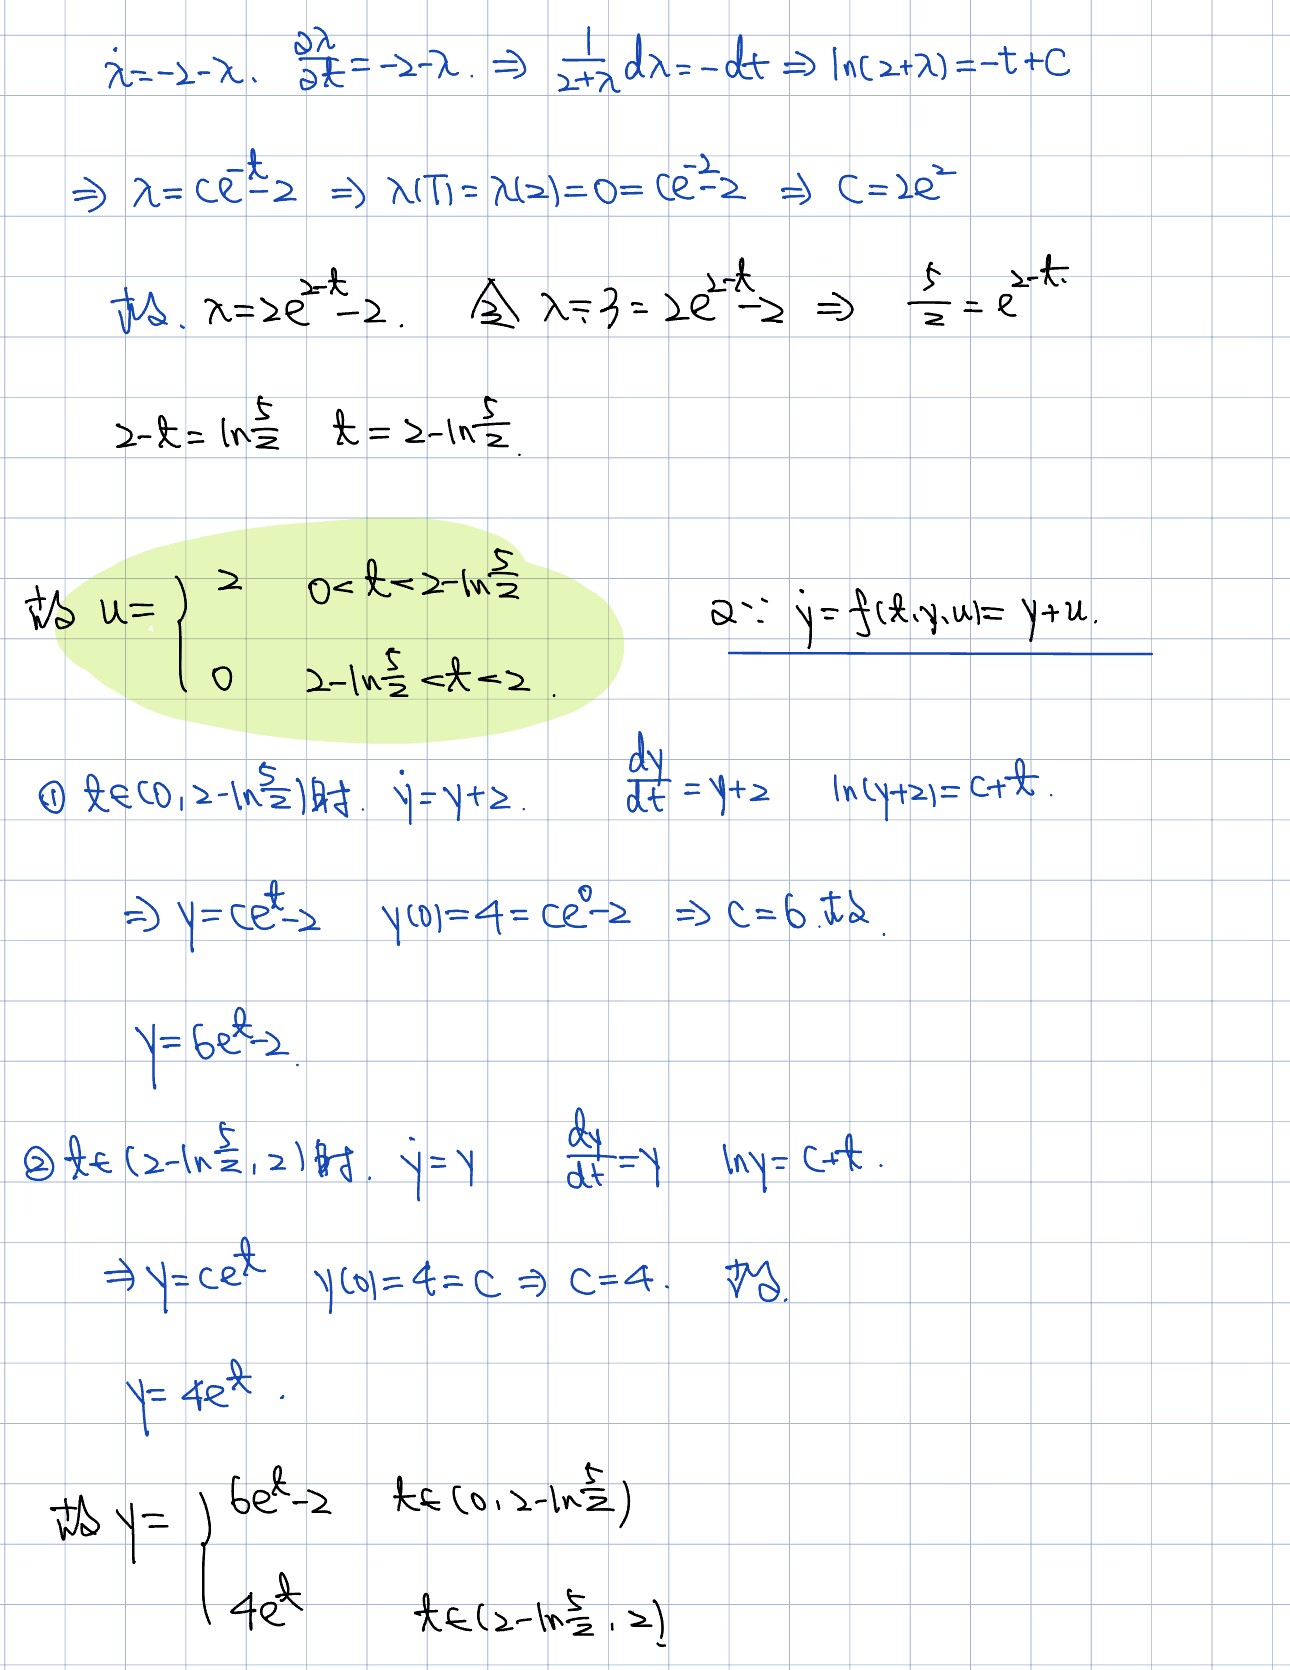 λ̇=-2-λ. ∂λ/∂t=-2-λ. ⇒ 1/(2+λ) dλ=-dt ⇒ ln(2+λ)=-t+C
⇒ λ=Ce^{-t}-2 ⇒ λ(T)=λ(2)=0=Ce^{-2}-2 ⇒ C=2e^2
故. λ=2e^{2-t}-2. λ=3=2e^{2-t}-2 ⇒ 5/2=e^{2-t}.
2-t=ln5/2 t=2-ln5/2.
故 u={ 2 0<t<2-ln5/2
0 2-ln5/2<t<2.
又∵ ẏ=f(t,y,u)=y+u.
① t∈(0,2-ln5/2)时. ẏ=y+2. dy/dt=y+2 ln(y+2)=C+t.
⇒ y=Ce^t-2 y(0)=4=Ce^0-2 ⇒ C=6.故.
y=6e^t-2.
② t∈(2-ln5/2,2)时. ẏ=y dy/dt=y lny=C+t.
⇒ y=Ce^t y(0)=4=C ⇒ C=4. 故.
y=4e^t.
故 y={ 6e^t-2 t∈(0,2-ln5/2)
4e^t t∈(2-ln5/2,2).